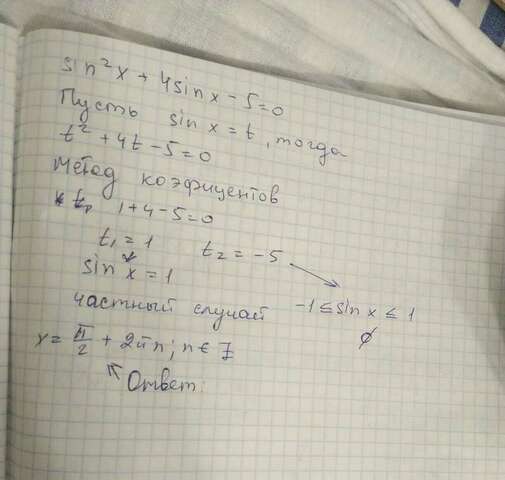 sin²x + 4sinx - 5 = 0
Пусть sin x = t, тогда
t² + 4t - 5 = 0
Метод коэфицентов
1 + 4 - 5 = 0
t₁ = 1 t₂ = -5
sin x = 1
частный случай -1 ≤ sin x ≤ 1
x = π/2 + 2πn; n ∈ Z ∅
Ответ: